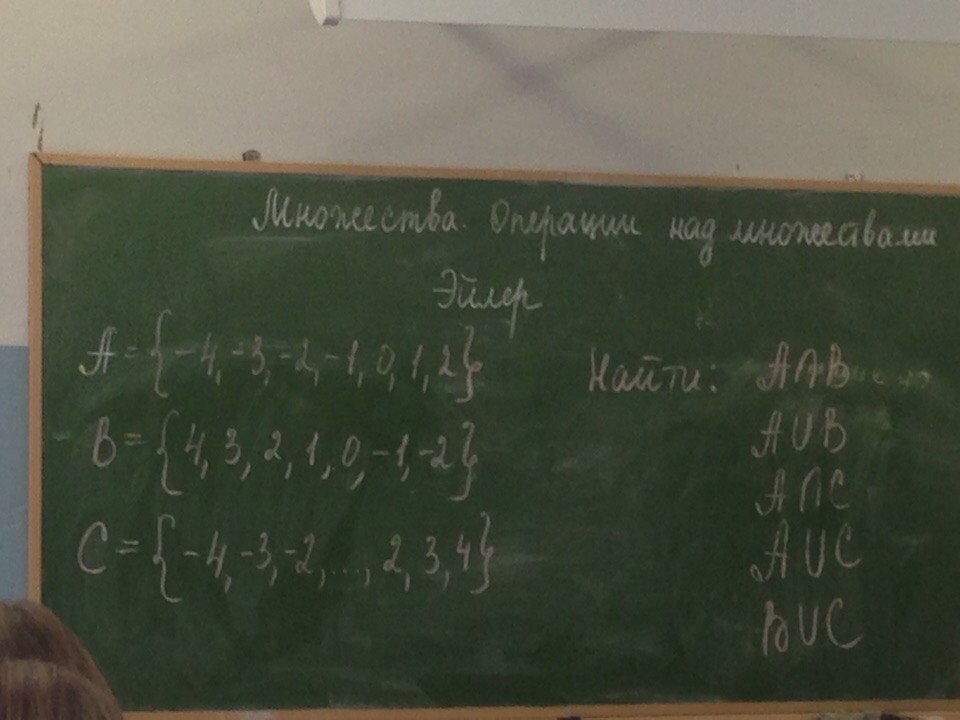 Множества. Операции над множествами
Эйлер
A = {-4, -3, -2, -1, 0, 1, 2}
B = {4, 3, 2, 1, 0, -1, -2}
C = {-4, -3, -2, ..., 2, 3, 4}
Найти: A∩B
A∪B
A∩C
A∪C
B∪C